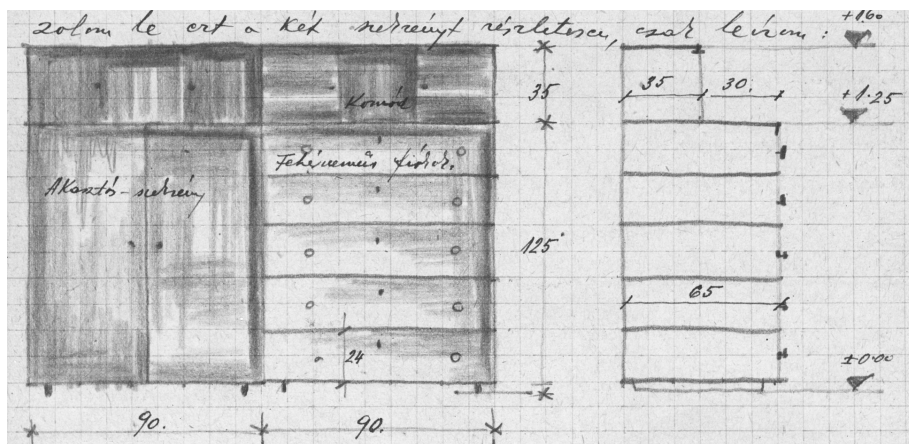 zolom le ezt a két szekrényt részletesen, csak leírom:
+1.60
35
35 30.
+1.25
Komód
Fehérneműs fiókok.
Akasztós-szekrény
125
65
24
±0.00
90. 90.